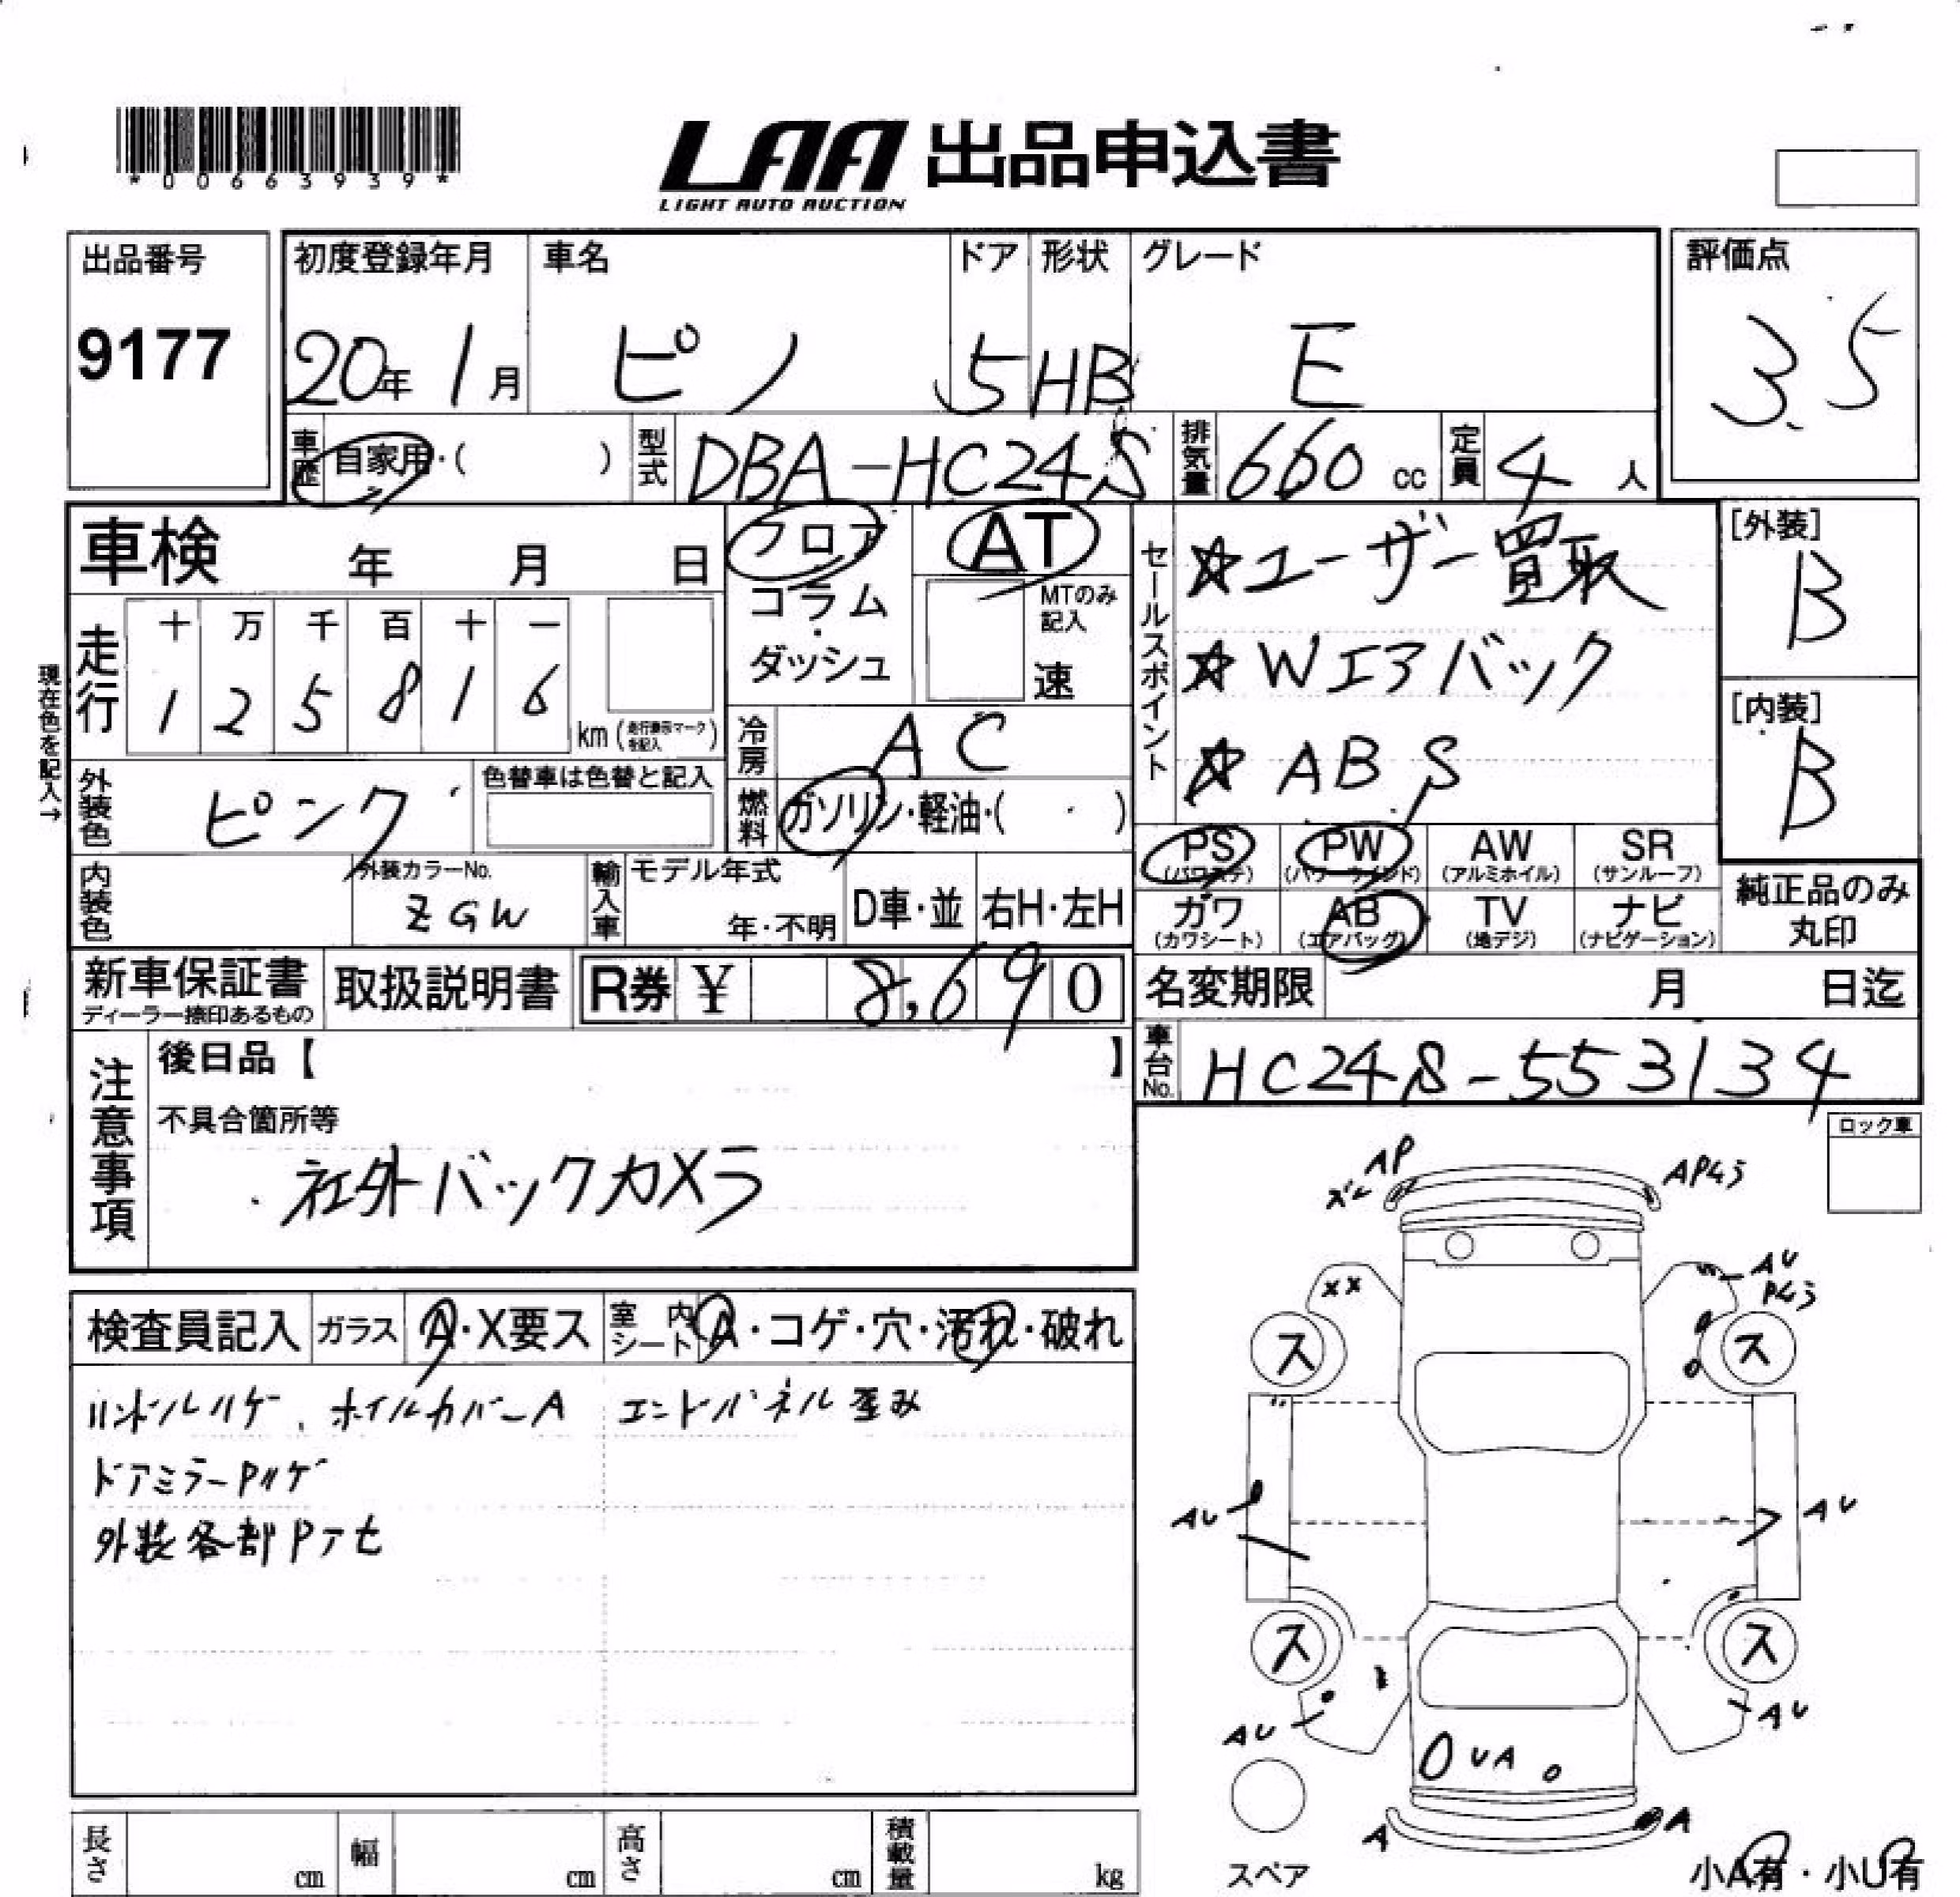 *00663939*
LAA 出品申込書
LIGHT AUTO AUCTION
出品番号
9177
初度登録年月
20年 1月
車名
ピノ
ドア
5
形状
HB
グレード
E
評価点
3.5
車歴 自家用・( )
型式 DBA-HC24S
排気量 660 cc
定員 4 人
車検 年 月 日
フロア
コラム
・
ダッシュ
AT
MTのみ
記入
速
セールスポイント
☆ユーザー買取
☆Wエアバック
☆ABS
[外装]
B
[内装]
B
現在色を記入→
走行
十 万 千 百 十 一
1 2 5 8 1 6
km (走行表示マークを記入)
冷房 AC
燃料 ガソリン・軽油・( )
外装色 ピンク
色替車は色替と記入
内装色
外装カラーNo.
ZGW
輸入車
モデル年式
年・不明
D車・並
右H・左H
PS
(パワステ)
PW
(パワーウインド)
AW
(アルミホイル)
SR
(サンルーフ)
カワ
(カワシート)
AB
(エアバッグ)
TV
(地デジ)
ナビ
(ナビゲーション)
純正品のみ
丸印
新車保証書
ディーラー捺印あるもの
取扱説明書
R券 ¥ 8,690
名変期限 月 日迄
車台No. HC24S-553134
注意事項
後日品【 】
不具合箇所等
社外バックカメラ
ロック車
検査員記入
ガラス A・X要ス
室内シート A・コゲ・穴・汚れ・破れ
ハンドルハゲ、ホイルカバーA エンドパネル歪み
ドアミラーPハゲ
外装各部Pアセ
AP
APムラ
XX
AU
Pムラ
ス ス
AU AU
ス ス
AU AU
UA
A A
スペア
小A有・小U有
長さ cm
幅 cm
高さ cm
積載量 kg